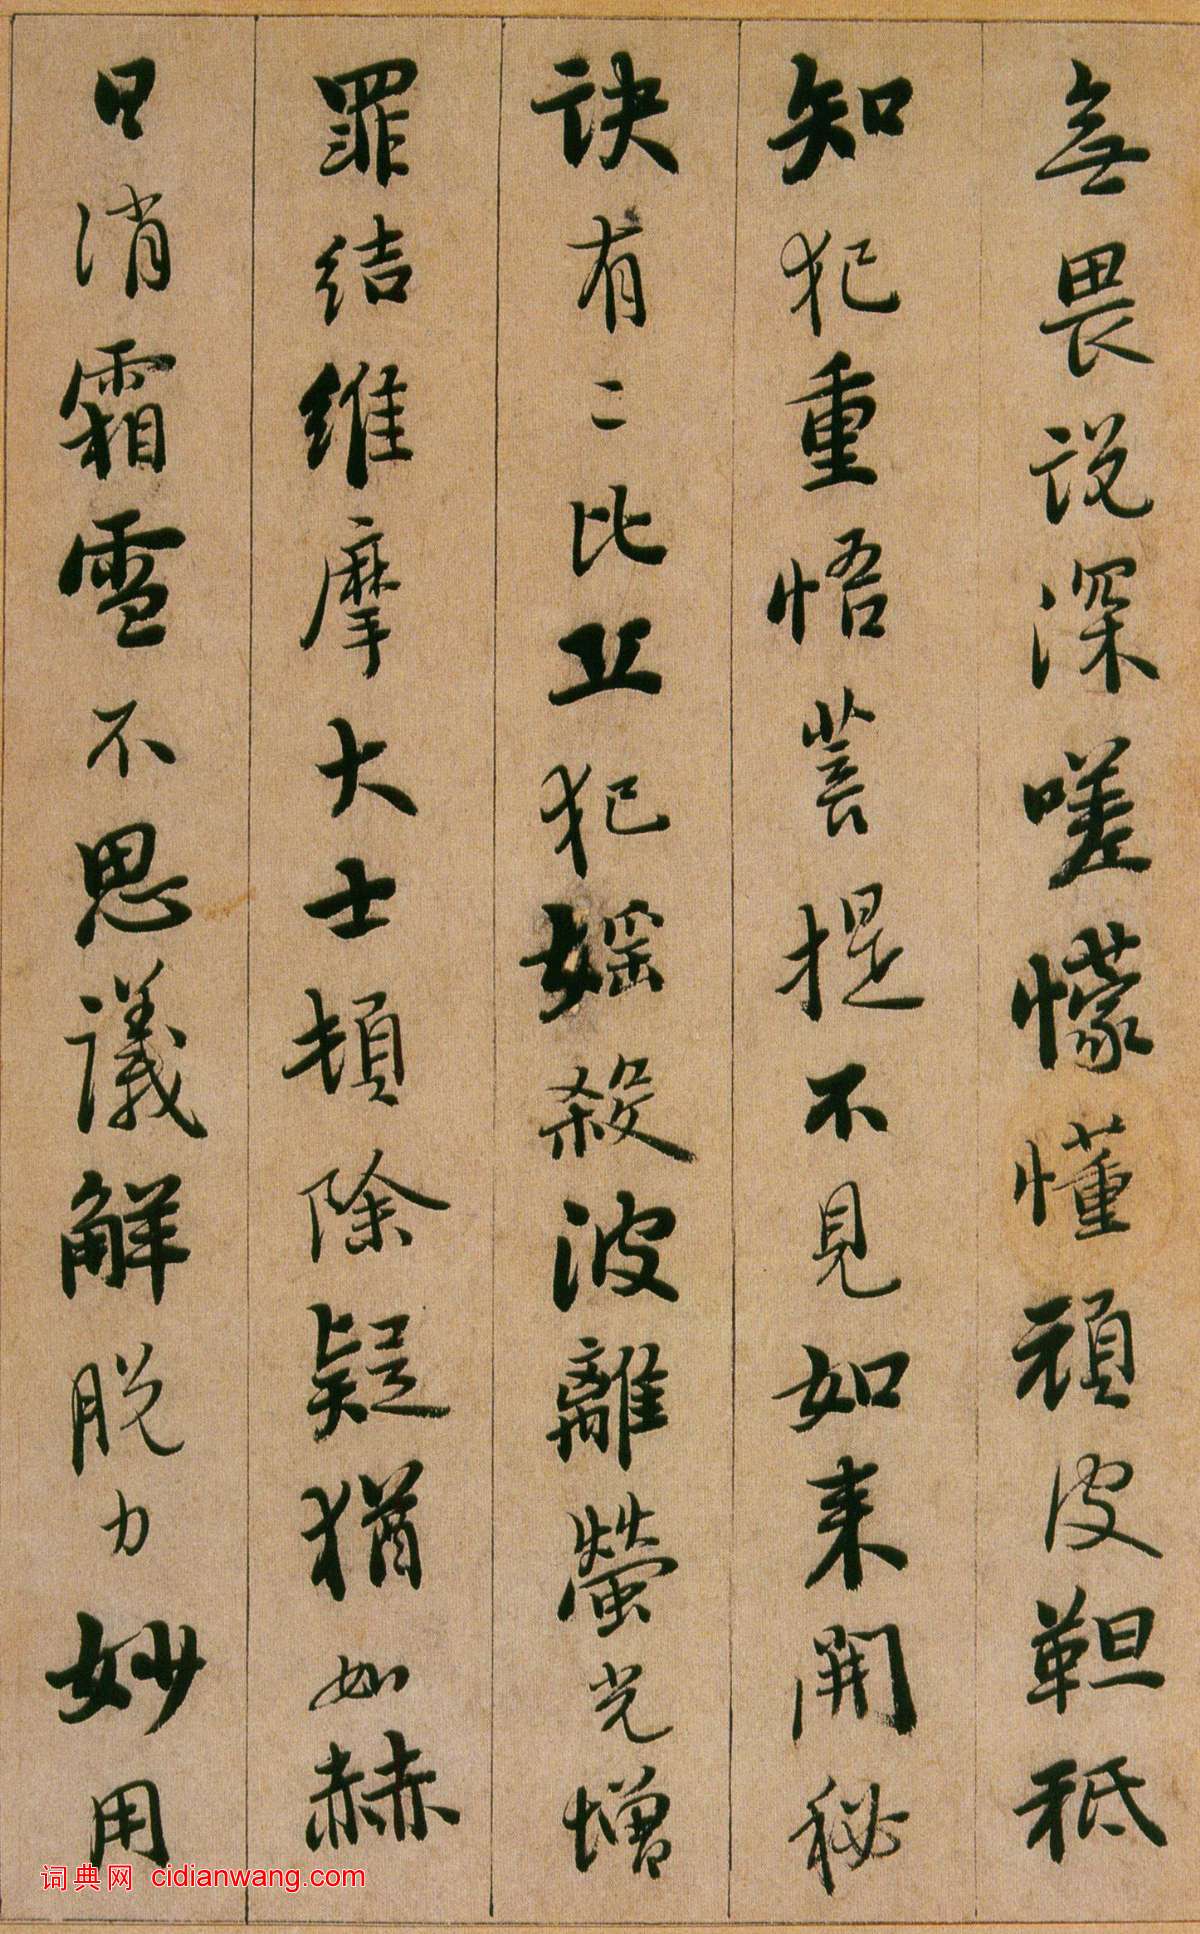 無畏說深嗟懞懂頑皮靼秪
知犯重悟菩提不見如来開秘
訣有二比丘犯婬殺波離螢光增
罪結維摩大士頓除疑猶如赫
日消霜雪不思議解脫力妙用
词典网 cidianwang.com